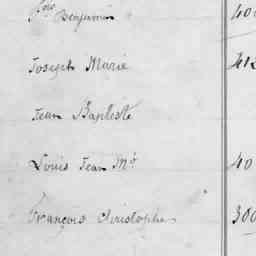 Benjamin 400
Joseph Marie 412
Jean Baptiste
Louis Jean Mie 40
François Christophe 300